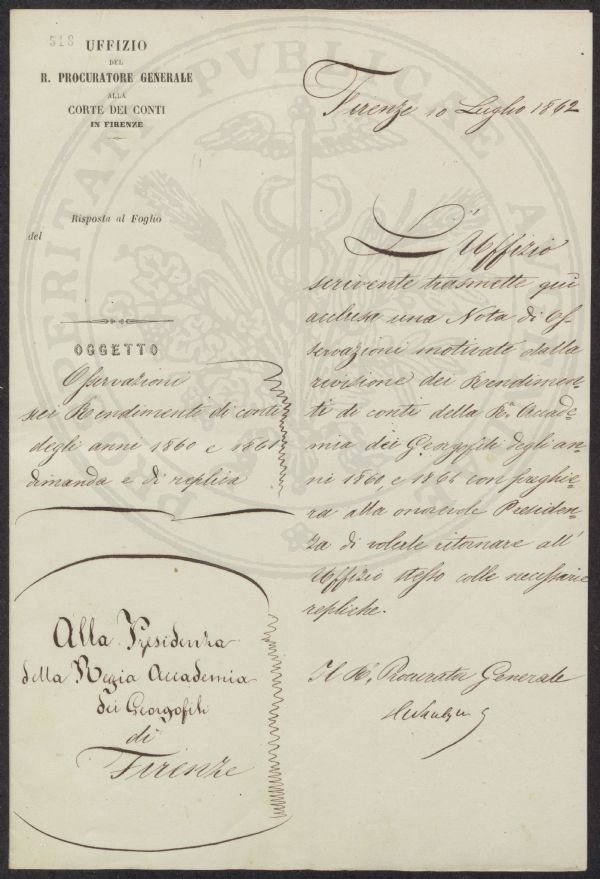 518
UFFIZIO
DEL
R. PROCURATORE GENERALE
ALLA
CORTE DEI CONTI
IN FIRENZE
Risposta al Foglio
del
OGGETTO
Osservazioni
sui Rendimenti di conti
degli anni 1860 e 1861
dimanda e di replica
Alla Presidenza
della Regia Accademia
dei Georgofili
di
Firenze
Firenze 10 Luglio 1862
L'Uffizio
scrivente trasmette quì
acclusa una Nota di Os-
servazioni motivate dalla
revisione dei Rendimen-
ti di conti della R. Accade-
mia dei Georgofili degli an-
ni 1860 e 1861 con preghie-
ra alla onorevole Presiden-
za di volerle ritornare all'
Uffizio stesso colle necessarie
repliche.
Il R. Procurator Generale
PROSPERITATI PUBLICAE AUGENDAE